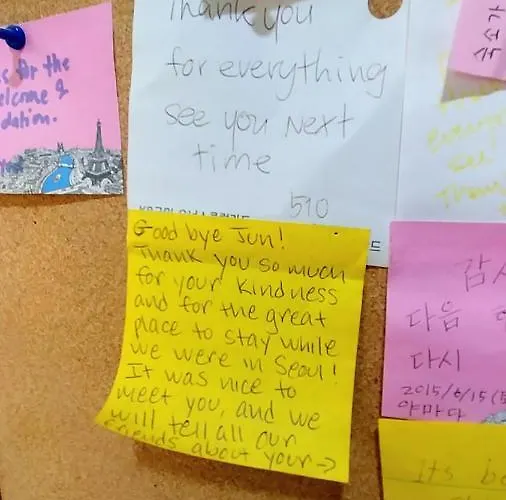 s for the
elcome &
dation.
Thank you
for everything
see you Next
time
510
Good bye Jun!
Thank you so much
for your kindness
and for the great
place to stay while
we were in Seoul!
It was nice to
meet you, and we
will tell all our
friends about your →
감사
다음
다시
2015/6/15
야마다
Its be